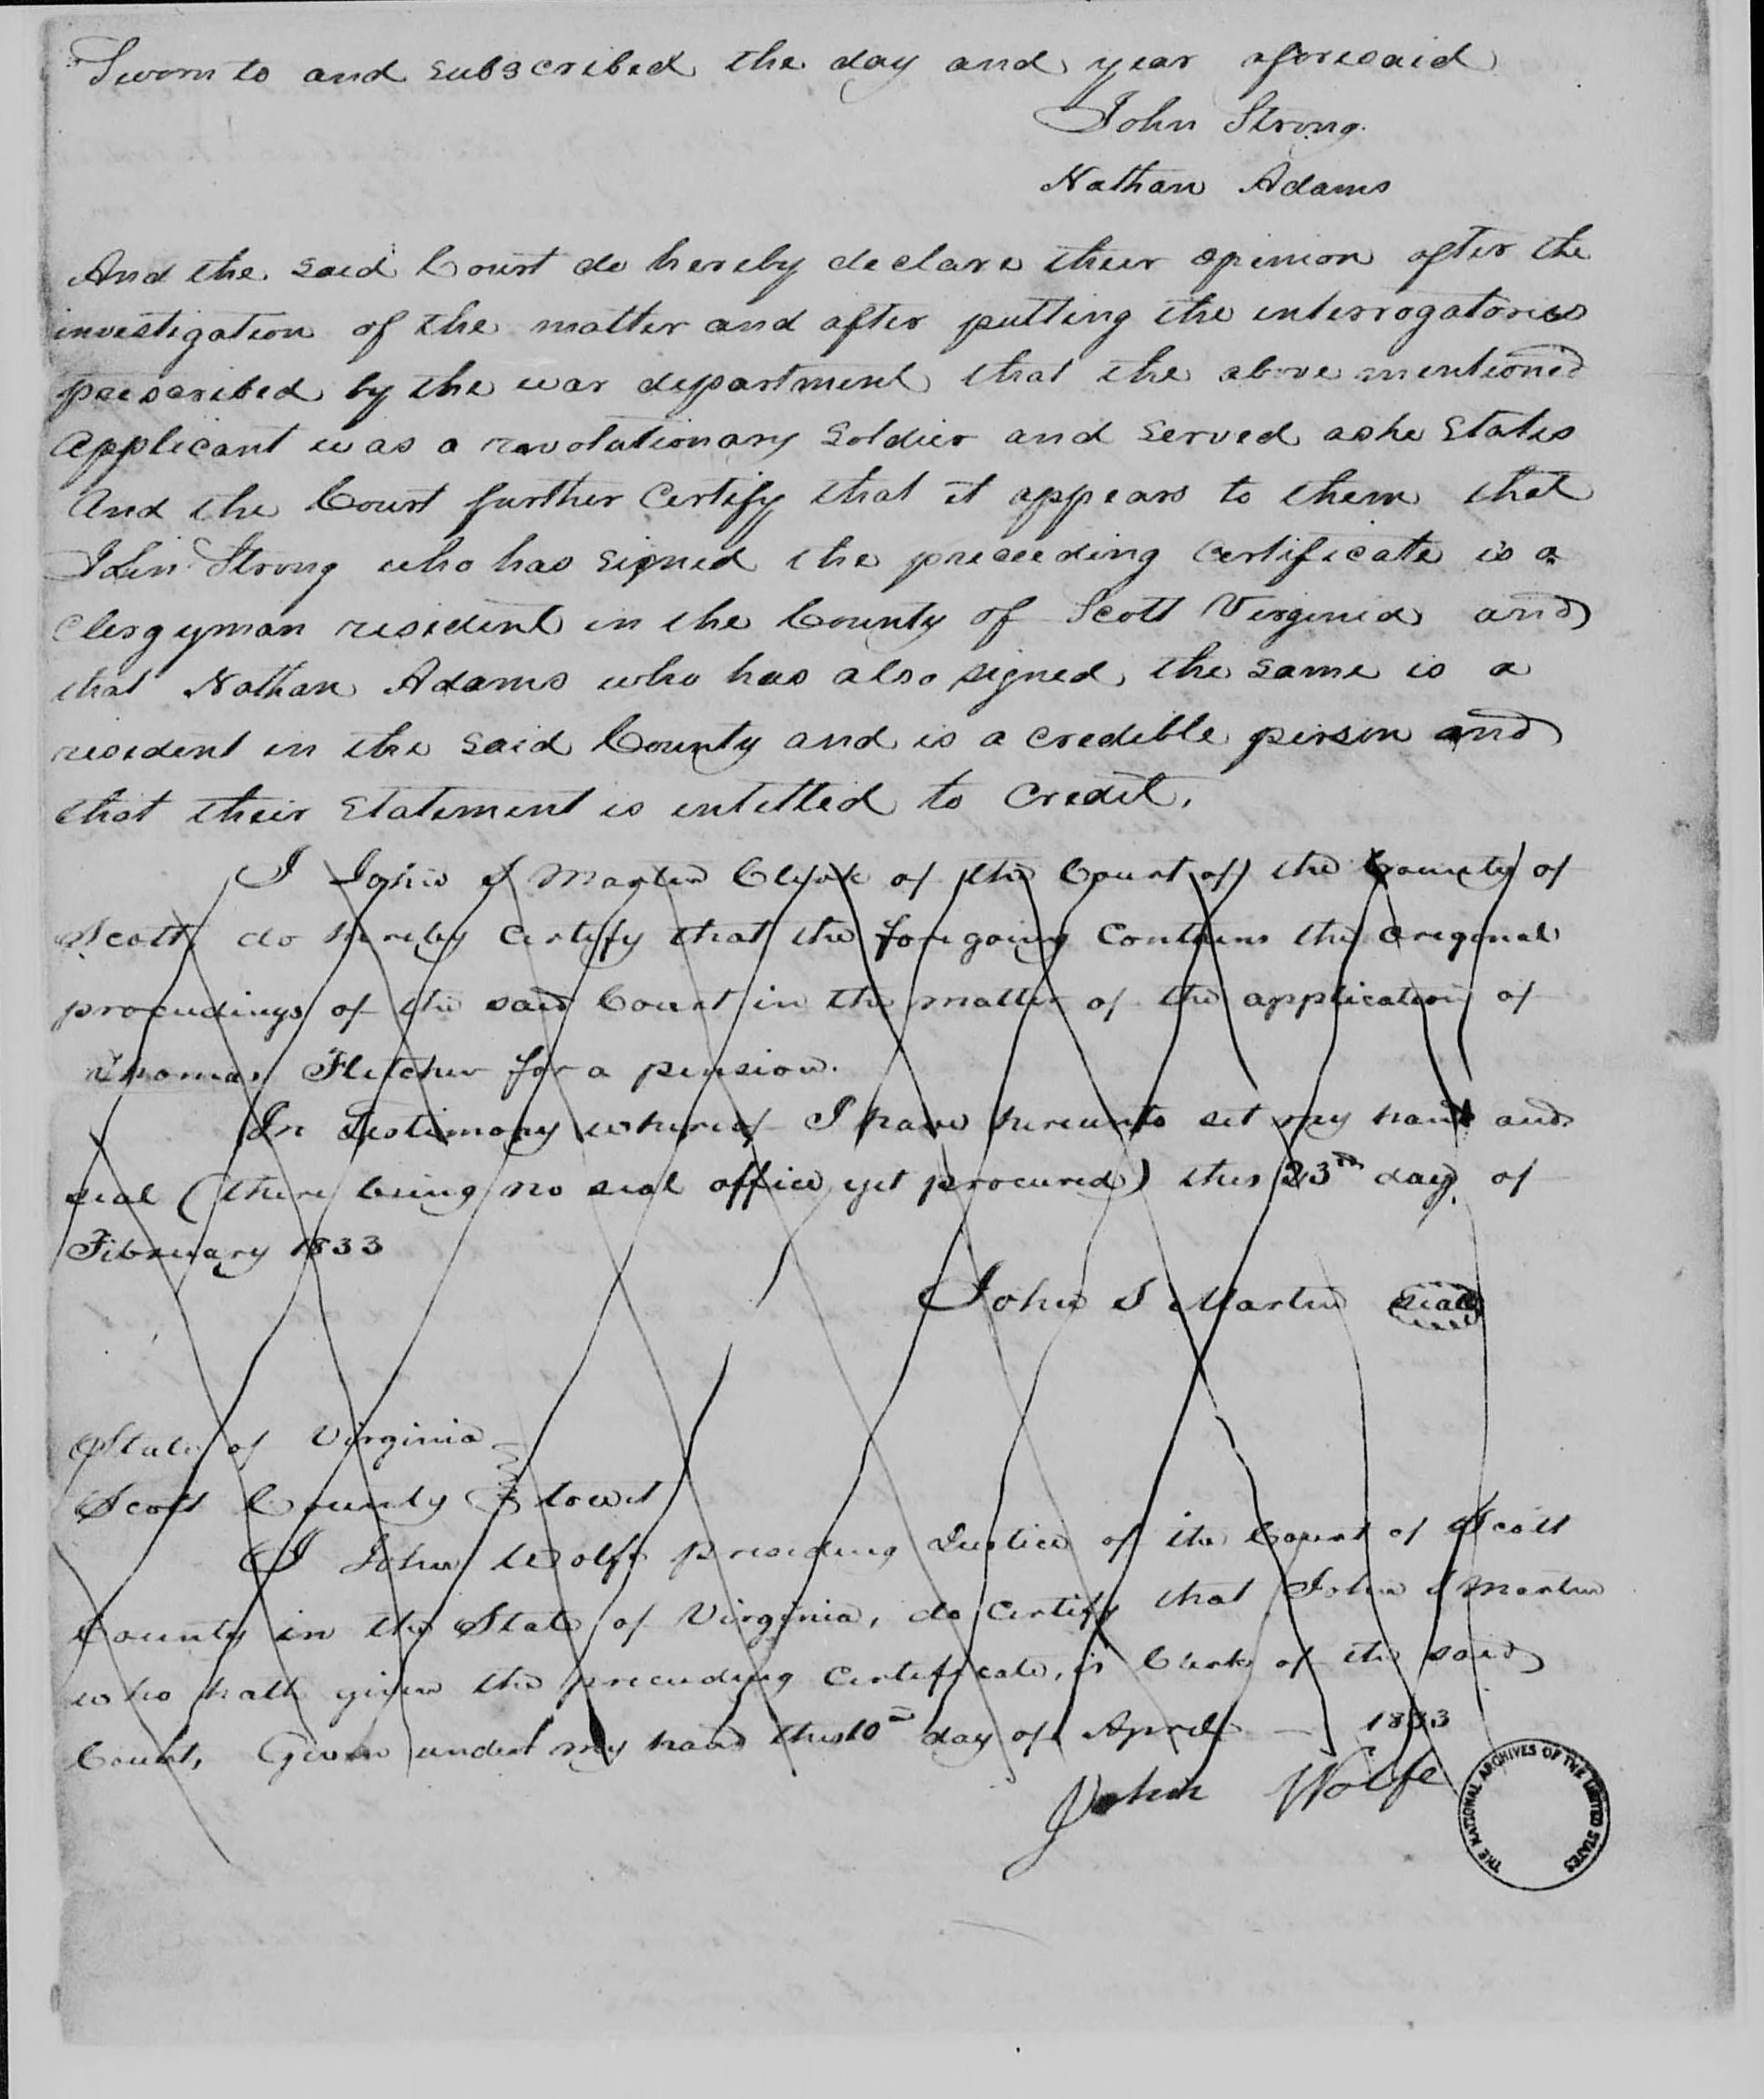 Sworn to and subscribed the day and year aforesaid
John Strong
Nathan Adams
And the said Court do hereby declare their opinion after the
investigation of the matter and after putting the interrogatories
prescribed by the war department that the above mentioned
applicant was a revolutionary soldier and served as he states
And the Court further certify that it appears to them that
John Strong who has signed the preceeding certificate is a
clergyman resident in the County of Scott Virginia and
that Nathan Adams who has also signed the same is a
resident in the said County and is a credible person and
that their statement is entitled to credit.
I John S Martin Clerk of the Court of the County of
Scott do hereby certify that the foregoing contains the original
proceedings of the said Court in the matter of the application of
Thomas Fletcher for a pension.
In Testimony whereof I have hereunto set my hand and
seal (there being no seal office yet procured) this 23rd day of
February 1833
John S Martin seal
State of Virginia
Scott County towit
I John Wolfe presiding Justice of the Court of Scott
County in the State of Virginia, do certify that John S Martin
who hath given the preceding certificate, is Clerk of the said
Court, Given under my hand this 10th day of April 1833
John Wolfe
THE NATIONAL ARCHIVES OF THE UNITED STATES